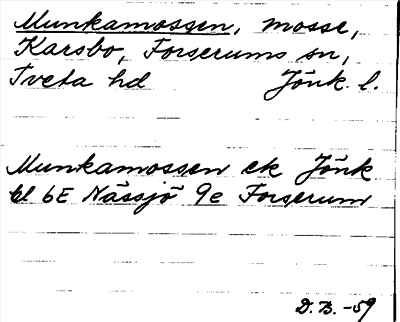 Munkamossen, mosse,
Karsbo, Forserums sn,
Tveta hd Jönk. l.
Munkamossen ek Jönk
bl 6E Nässjö 9e Forserum
D. B. -59